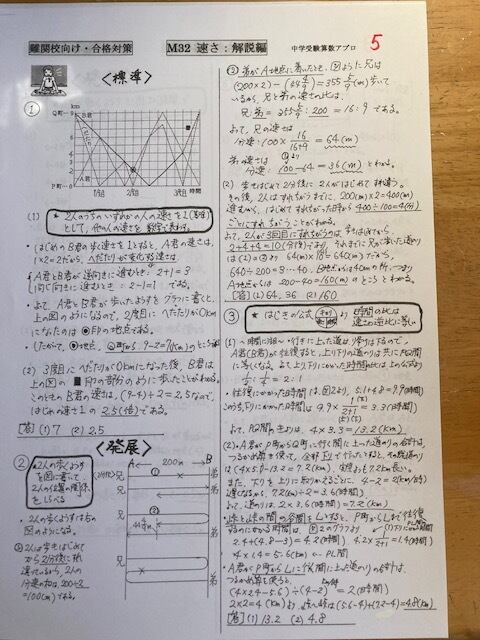 難関校向け・合格対策
M32 速さ:解説編
中学受験算数アプロ
5
<標準>
①
km
Q町…9
8
7
6
5
4
3
2
1
P町…0
B君
A君
1時間
2時間
3時間
時間
(1)
として、他の人の速さを整数で表わす。
はじめのB君の歩く速さを1とすると、A君の速さは、
1×2=2だから、へだたりが変化する速さは、
A君とB君が逆向きに進むとき:2+1=3
同じ向きに進むとき:2-1=1である。
よって、A君とB君が歩いたようすをグラフに書くと、
上の図のようになるので、2度目に、へだたりが0km
になったのは●印の地点である。
(2) 3度目にへだたりが0kmになった後、B君は
上の図の■印の部分のように歩いたことがわかる。
このときのB君の速さは、(9-4)÷2=2.5なので、
はじめの速さ1の2.5(倍)である。
[答](1) 7 (2) 2.5
<発展>
②
2人の歩くようす
を図に書いて
2人の位置の関係
をしらべる
2人の歩くようすは右
の図のようになる。
①2人は歩きはじめて
から2分後に
速いているから、2人の
分速の和は、200÷2
=100(m)である。
A
200m
B
兄
弟
①
兄
弟
②
兄
弟
③
兄
弟
②弟がA地点に着いたとき、②のように兄は
(200×2)-(44 4/9)=355 5/9(m)歩いて
いるから、兄と弟の速さの比は、
兄:弟=355 5/9:200=16:9である。
よって、兄の速さは
分速:100×16/(16+9)=64(m)
弟の速さは
分速:100-64=36(m)とわかる。
(2) 歩きはじめて2分後に2人がはじめて出違う。
その後、2人はすれちがうまでに、200(m)×2=400(m)
進むから、はじめてすれちがった時から400÷100=4(分)
ごとにすれちがう。
よって、2人が3回目にすれちがうのは、歩きはじめてから、
2+4+4=10(分後)であり、それまでに兄が歩いた道のり
は(1)の②より64(m)×10=640(m)だから、
640÷200=3…40、B地点から40mの所、つまり
A地点からは200-40=160(m)のところとわかる。
[答](1) 64, 36 (2) 160
③
★はじきの公式
より
時間の比は
速さの逆比に等しい
に等しくなる。よって上り下りにかかる時間の比は上の公式より
1/2:1/4=2:1
往復にかかった時間は、図2より、5.1+4.8=9.9(時間)
このうち、下りにかかった時間は、9.9×1/(2+1)=3.3(時間)
よって、PQ間のきょりは、4×3.3=13.2(km)
(2)・A君がP町からQ町に行く間に上った道のりの合計は、
つるかめ算を使って、全部下りで行ったとすると、その距離の
は(4×5.1)-13.2=7.2(km)、実際より7.2km長い。
また、下りを上りに取りかえるごとに、4-2=2(km/時)
遅くなるから、7.2(km)÷2=3.6(時間)
よって、道のりは、2×3.6(時間)=7.2(km)
2.4+(4.8-3)=4.2(時間) 4.2×1/(2+1)=1.4(時間)
4×1.4=5.6(km) ← PL間
A君がP町からLに行く間に上った道のりの合計は、
つるかめ算を使うと、
(4×2.4-5.6)÷(4-2)=2(時間)
2×2=4(km)より
(5.6-4)+(7.2-4)=4.8(km)
[答](1) 13.2 (2) 4.8